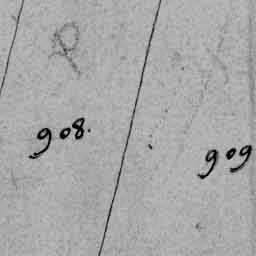 908.
909